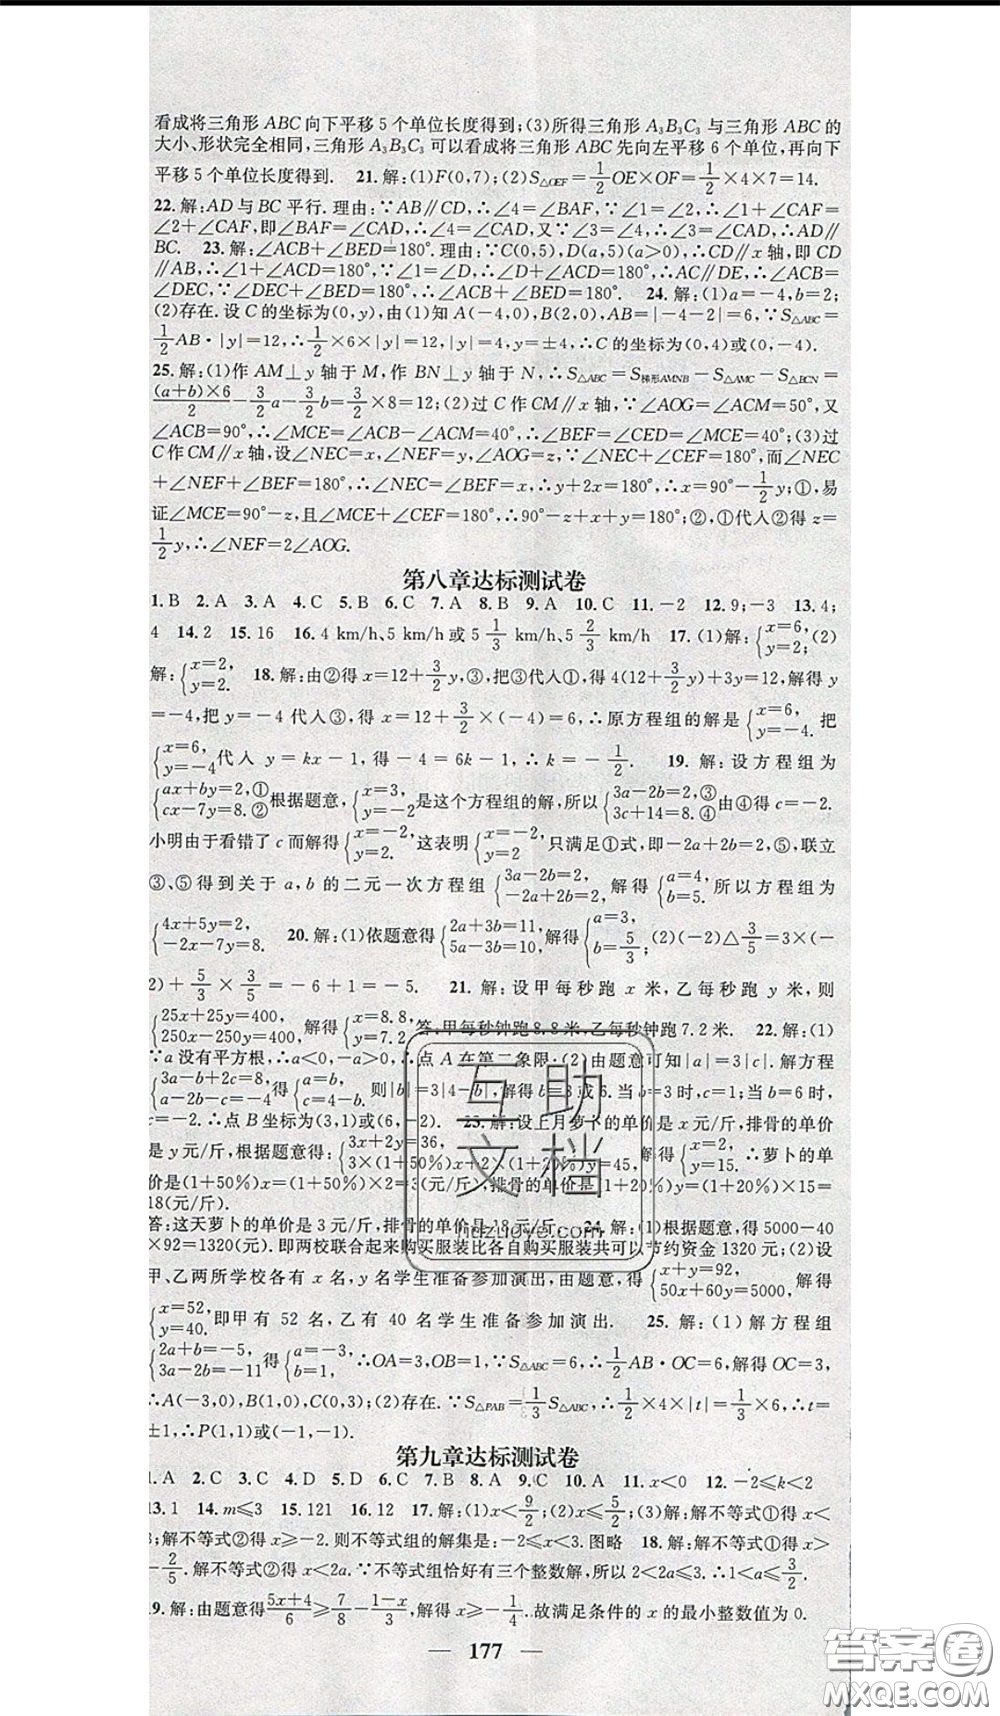 看成将三角形 ABC 向下平移 5 个单位长度得到;(3)所得三角形 A₃B₃C₃ 与三角形 ABC 的
大小、形状完全相同,三角形 A₃B₃C₃ 可以看成将三角形 ABC 先向左平移 6 个单位,再向下
平移 5 个单位长度得到. 21.解:(1)F(0,7);(2)S△OEF=1/2 OE×OF=1/2×4×7=14.
22.解:AD 与 BC 平行.理由:∵AB∥CD,∴∠4=∠BAF,∵∠1=∠2,∴∠1+∠CAF=
∠2+∠CAF,即∠BAF=∠CAD,∴∠4=∠CAD,又∵∠3=∠4,∴∠3=∠CAD,∴AD∥
BC. 23.解:∠ACB+∠BED=180°.理由:∵C(0,5),D(a,5)(a>0),∴CD∥x 轴,即 CD
∥AB,∴∠1+∠ACD=180°,∵∠1=∠D,∴∠D+∠ACD=180°,∴AC∥DE,∴∠ACB=
∠DEC,∵∠DEC+∠BED=180°,∴∠ACB+∠BED=180°. 24.解:(1)a=-4,b=2;
(2)存在.设 C 的坐标为(0,y),由(1)知 A(-4,0),B(2,0),AB=|-4-2|=6,∵S△ABC=
1/2 AB·|y|=12,∴1/2×6×|y|=12,∴y=±4,∴C 的坐标为(0,4)或(0,-4).
25.解:(1)作 AM⊥y 轴于 M,作 BN⊥y 轴于 N,∴S△ABC=S梯形AMNB-S△AMC-S△BCN=
(a+b)×6/2-3/2 a-3/2 b=3/2×8=12;(2)过 C 作 CM∥x 轴,∵∠AOG=∠ACM=50°,又
∠ACB=90°,∴∠MCE=∠ACB-∠ACM=40°,∴∠BEF=∠CED=∠MCE=40°;(3)过
C 作 CM∥x 轴,设∠NEC=x,∠NEF=y,∠AOG=z,∵∠NEC+∠CEF=180°,而∠NEC
+∠NEF+∠BEF=180°,∴∠NEC=∠BEF=x,∴y+2x=180°,∴x=90°-1/2 y;①,易
证∠MCE=90°-z,且∠MCE+∠CEF=180°,∴90°-z+x+y=180°;②,①代入②得 z=
1/2 y,∴∠NEF=2∠AOG.
第八章达标测试卷
1.B 2.A 3.A 4.C 5.B 6.C 7.A 8.B 9.A 10.C 11.-2 12.9;-3 13.4;
4 14.2 15.16 16.4 km/h、5 km/h 或 5 1/3 km/h、5 2/3 km/h 17.(1)解:{x=6, y=2;(2)
解:{x=2, y=2. 18.解:由②得 x=12+3/2 y,③,把③代入①,得 4(12+3/2 y)+3y=12,解得 y
=-4,把 y=-4 代入③,得 x=12+3/2×(-4)=6,∴原方程组的解是{x=6, y=-4. 把
{x=6, y=-4 代入 y=kx-1,得-4=6k-1,∴k=-1/2. 19.解:设方程组为
{ax+by=2,① cx-7y=8.② 根据题意,{x=3, y=-2 是这个方程组的解,所以{3a-2b=2,③ 3c+14=8.④ 由④得 c=-2.
小明由于看错了 c 而解得{x=-2, y=2. 这表明{x=-2, y=2 只满足①式,即-2a+2b=2,⑤,联立
③、⑤得到关于 a,b 的二元一次方程组{3a-2b=2, -2a+2b=2, 解得{a=4, b=5. 所以方程组为
{4x+5y=2, -2x-7y=8. 20.解:(1)依题意得{2a+3b=11, 5a-3b=10, 解得{a=3, b=5/3;(2)(-2)△3/5=3×(-
2)+5/3×3/5=-6+1=-5. 21.解:设甲每秒跑 x 米,乙每秒跑 y 米,则
{25x+25y=400, 250x-250y=400, 解得{x=8.8, y=7.2. 答:甲每秒钟跑 8.8 米,乙每秒钟跑 7.2 米. 22.解:(1)
∵a 没有平方根,∴a<0,-a>0,∴点 A 在第二象限;(2)由题意可知|a|=3|c|.解方程
{3a-b+2c=8, a-2b-c=-4 得{a=b, c=4-b. 则|b|=3|4-b|,解得 b=3 或 6.当 b=3 时,c=1;当 b=6 时,
c=-2.∴点 B 坐标为(3,1)或(6,-2). 23.解:设上月萝卜的单价是 x 元/斤,排骨的单价
是 y 元/斤,根据题意得:{3x+2y=36, 3×(1+50%)x+2×(1+20%)y=45, 解得{x=2, y=15. ∴萝卜的单
价是(1+50%)x=(1+50%)×2=3(元/斤),排骨的单价是(1+20%)y=(1+20%)×15=
18(元/斤).
答:这天萝卜的单价是 3 元/斤,排骨的单价是 18 元/斤. 24.解:(1)根据题意,得 5000-40
×92=1320(元).即两校联合起来购买服装比各自购买服装共可以节约资金 1320 元;(2)设
甲、乙两所学校各有 x 名,y 名学生准备参加演出,由题意,得{x+y=92, 50x+60y=5000, 解得
{x=52, y=40. 即甲有 52 名,乙有 40 名学生准备参加演出. 25.解:(1)解方程组
{2a+b=-5, 3a-2b=-11 得{a=-3, b=1, ∴OA=3,OB=1,∵S△ABC=6,∴1/2 AB·OC=6,解得 OC=3,
∴A(-3,0),B(1,0),C(0,3);(2)存在.∵S△PAB=1/3 S△ABC,∴1/2×4×|t|=1/3×6,∴t=
±1,∴P(1,1)或(-1,-1).
第九章达标测试卷
1.A 2.C 3.C 4.D 5.D 6.C 7.B 8.A 9.C 10.A 11.x<0 12.-2≤k<2
13.1 14.m≤3 15.121 16.12 17.解:(1)x<9/2;(2)x≤5/2;(3)解:解不等式①得 x<
3;解不等式②得 x≥-2.则不等式组的解集是:-2≤x<3.图略 18.解:解不等式①得 x>
-2/5.解不等式②得 x<2a.∵不等式组恰好有三个整数解,所以 2<2a≤3.∴1<a≤3/2.
19.解:由题意得 5x+4/6≥7/8-1-x/3,解得 x≥-1/4..故满足条件的 x 的最小整数值为 0.
— 177 —
互助
文档
huzuoye.com
答案卷
MXQE.COM